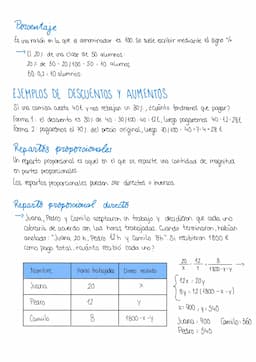 Porcentaje
Es una razón en la que el denominador es 100. Se suele escribir mediante el signo %
→ El 20% de una clase de 50 alumnos:
20% de 50 = 20/100 · 50 = 10 alumnos
50 · 0,2 = 10 alumnos
EJEMPLOS DE DESCUENTOS Y AUMENTOS
Si una camisa cuesta 40€ y nos rebajan un 30%, ¿cuánto tendremos que pagar?
Forma 1: el descuento es 30% de 40 = 30/100 · 40 = 12€, luego pagaremos 40 - 12 = 28€
Forma 2: pagaremos el 70% del precio original, luego 70/100 · 40 = 7 · 4 = 28€
Repartos proporcionales
Un reparto proporcional es aquel en el que se reparte una cantidad de magnitud
en partes proporcionales.
Los repartos proporcionales pueden ser directos o inversos.
Reparto proporcional directo
→ Juana, Pedro y Camilo aceptaron un trabajo y decidieron que cada uno
cobraría de acuerdo con las horas trabajadas. Cuando terminaron, habían
anotado: "Juana 20 h, Pedro 12 h y Camilo 8h". Si recibieron 1800€
como pago total, ¿cuánto recibió cada uno?
Nombre Horas trabajadas Dinero recibido
Juana 20 x
Pedro 12 y
Camilo 8 1800-x-y
20/x = 12/y = 8/(1800-x-y)
12x = 20y
8y = 12(1800-x-y)
x = 900 y = 540
Juana = 900 Camilo = 360
Pedro = 540